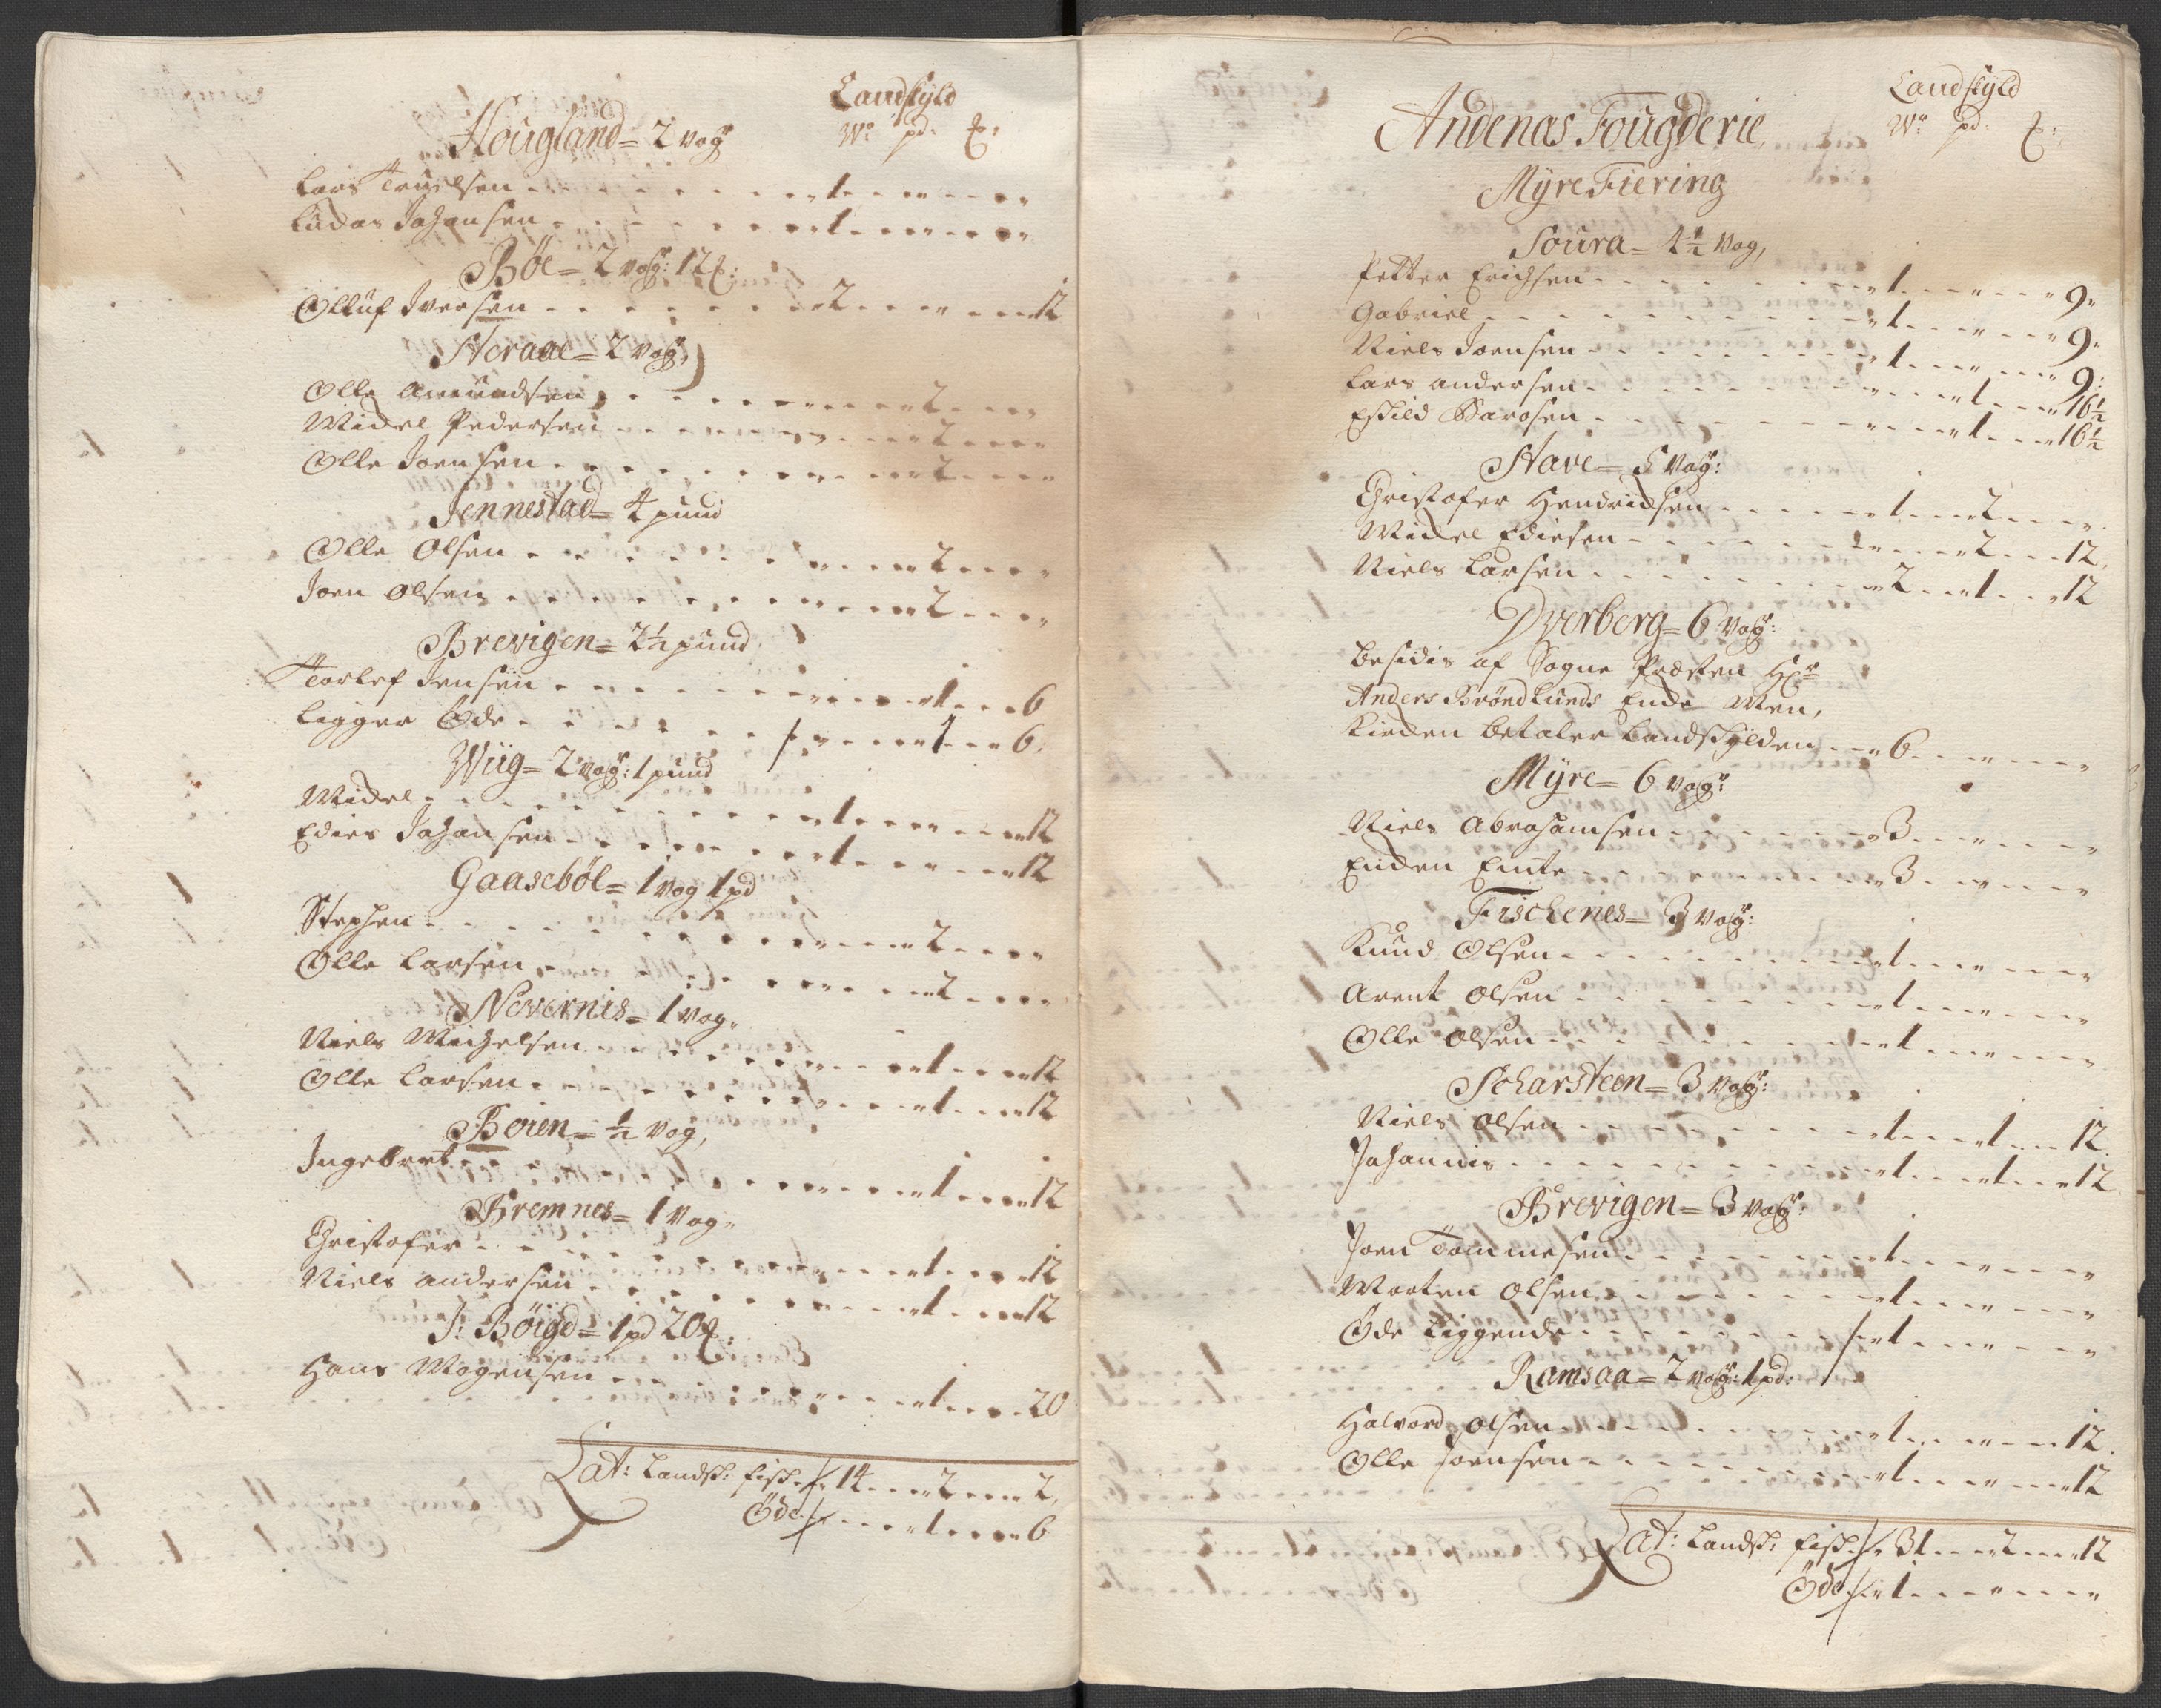 Landskyld
Hougland = 2 vogr Wr pd: ℔:
Lars Truelsen 1
Ludas Johansen 1
Bøe = 2 vogr: 12 ℔:
Olluf Iversen 2 12
Heraae = 2 vogr
Olle Amundsen 2
Michel Pedersen 2
Olle Joensen 2
Jennestad = 4 pund
Olle Olsen 2
Joen Olsen 2
Brevigen = 2½ pund
Torlef Jensen 1 6
Ligger Øde 1 6
Wiig = 2 vogr: 1 pund
Michel 1 12
Edies Johansen 1 12
Gaasebøl = 1 vog 1 pd
Stephen 2
Olle Larsen 2
Nevernis = 1 vog
Niels Michelsen 1 12
Olle Larsen 1 12
Boien = ½ vog,
Ingebret 1 12
Bremnes = 1 vog
Christofer 1 12
Niels Andersen 1 12
J: Böigd = 1 pd 20 ℔:
Hans Mogensen 1 20
Lat: Landsk: fisk 14 2 2
Øde 1 6
Landskyld
Andenas Fougderie, Wr pd: ℔:
Myre Fiering
Soura = 4½ vog,
Petter Erichsen 1 9
Gabriel 1 9
Niels Joensen 1 9
Lars Andersen 1 16½
Eskild Barosen 1 16½
Stave = 5 vogr:
Christofer Hendrichsen 1 2
Michel Ediesen 2 12
Niels Larsen 2 1 12
Dverberg = 6 vogr:
besidis af Sogne Præsten Hr
Anders Brøndlunds Enche Men,
Kirchen betaler Landskylden 6
Myre = 6 vogr:
Niels Abrahamsen 3
Enchen Emte 3
Fischenes = 3 vogr:
Knud Olsen 1
Arent Olsen 1
Olle Olsen 1
Scharsteen = 3 vogr:
Niels Olsen 1 1 12
Johannis 1 1 12
Brevigen = 3 vogr:
Joen Tommesen 1
Morten Olsen 1
Øde Liggende 1
Ramsaa = 2 vogr: 1 pd:
Halvord Olsen 1 12
Olle Joensen 1 12
Lat: Landsk: fisk 31 2 12
Øde 1